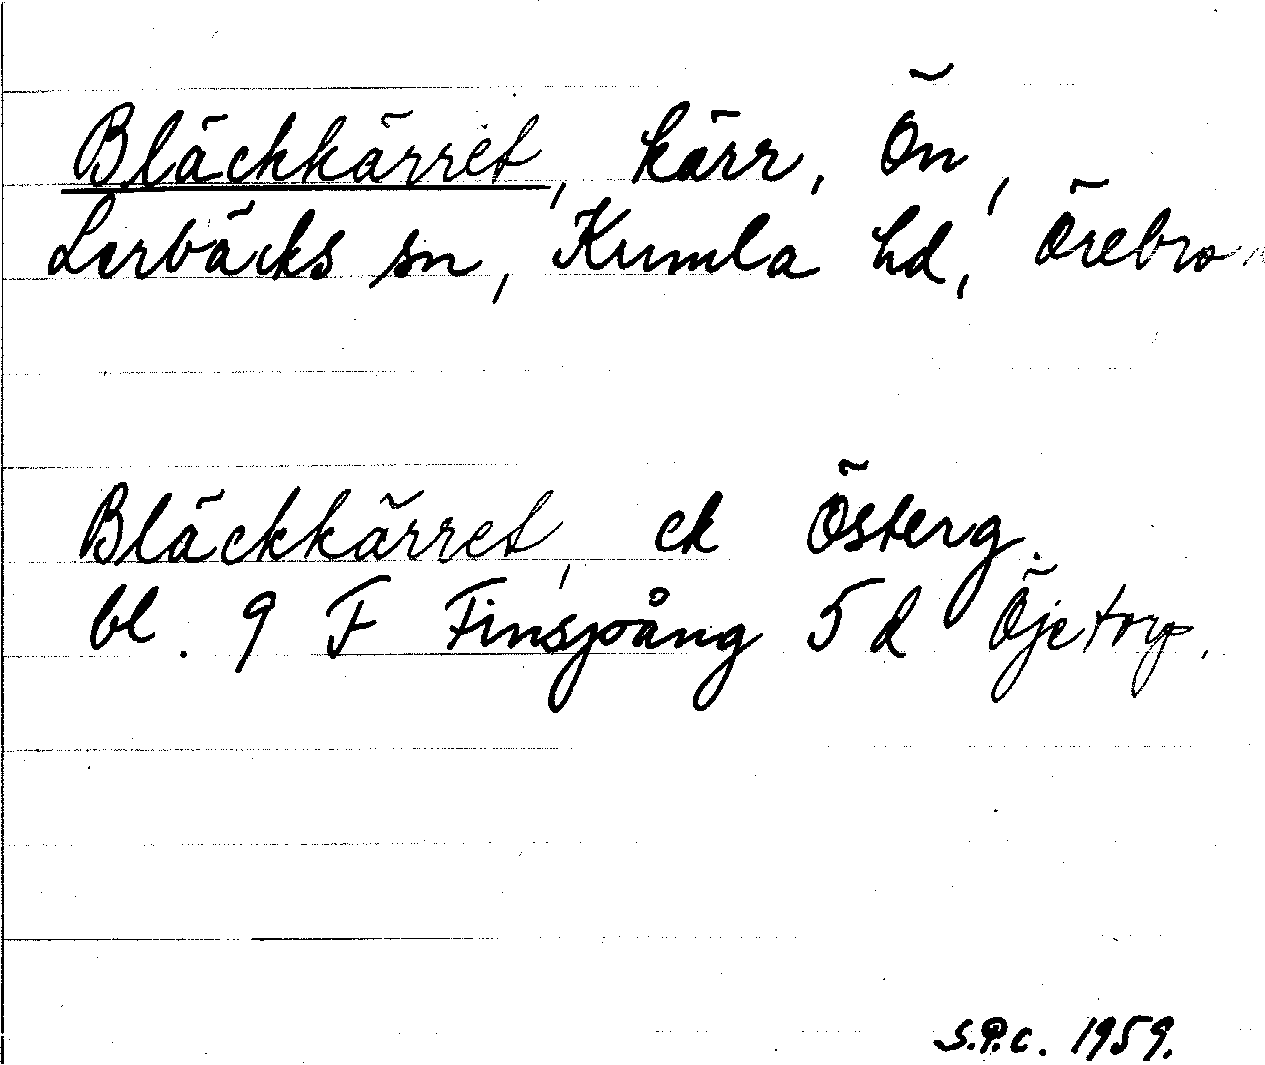 Bläckkärret, kärr, Ön,
Lerbäcks sn, Kumla hd, Örebro
Bläckkärret, ek Österg.
bl. 9 F Finspång 5 d Öjetorp.
S.P.C. 1959.